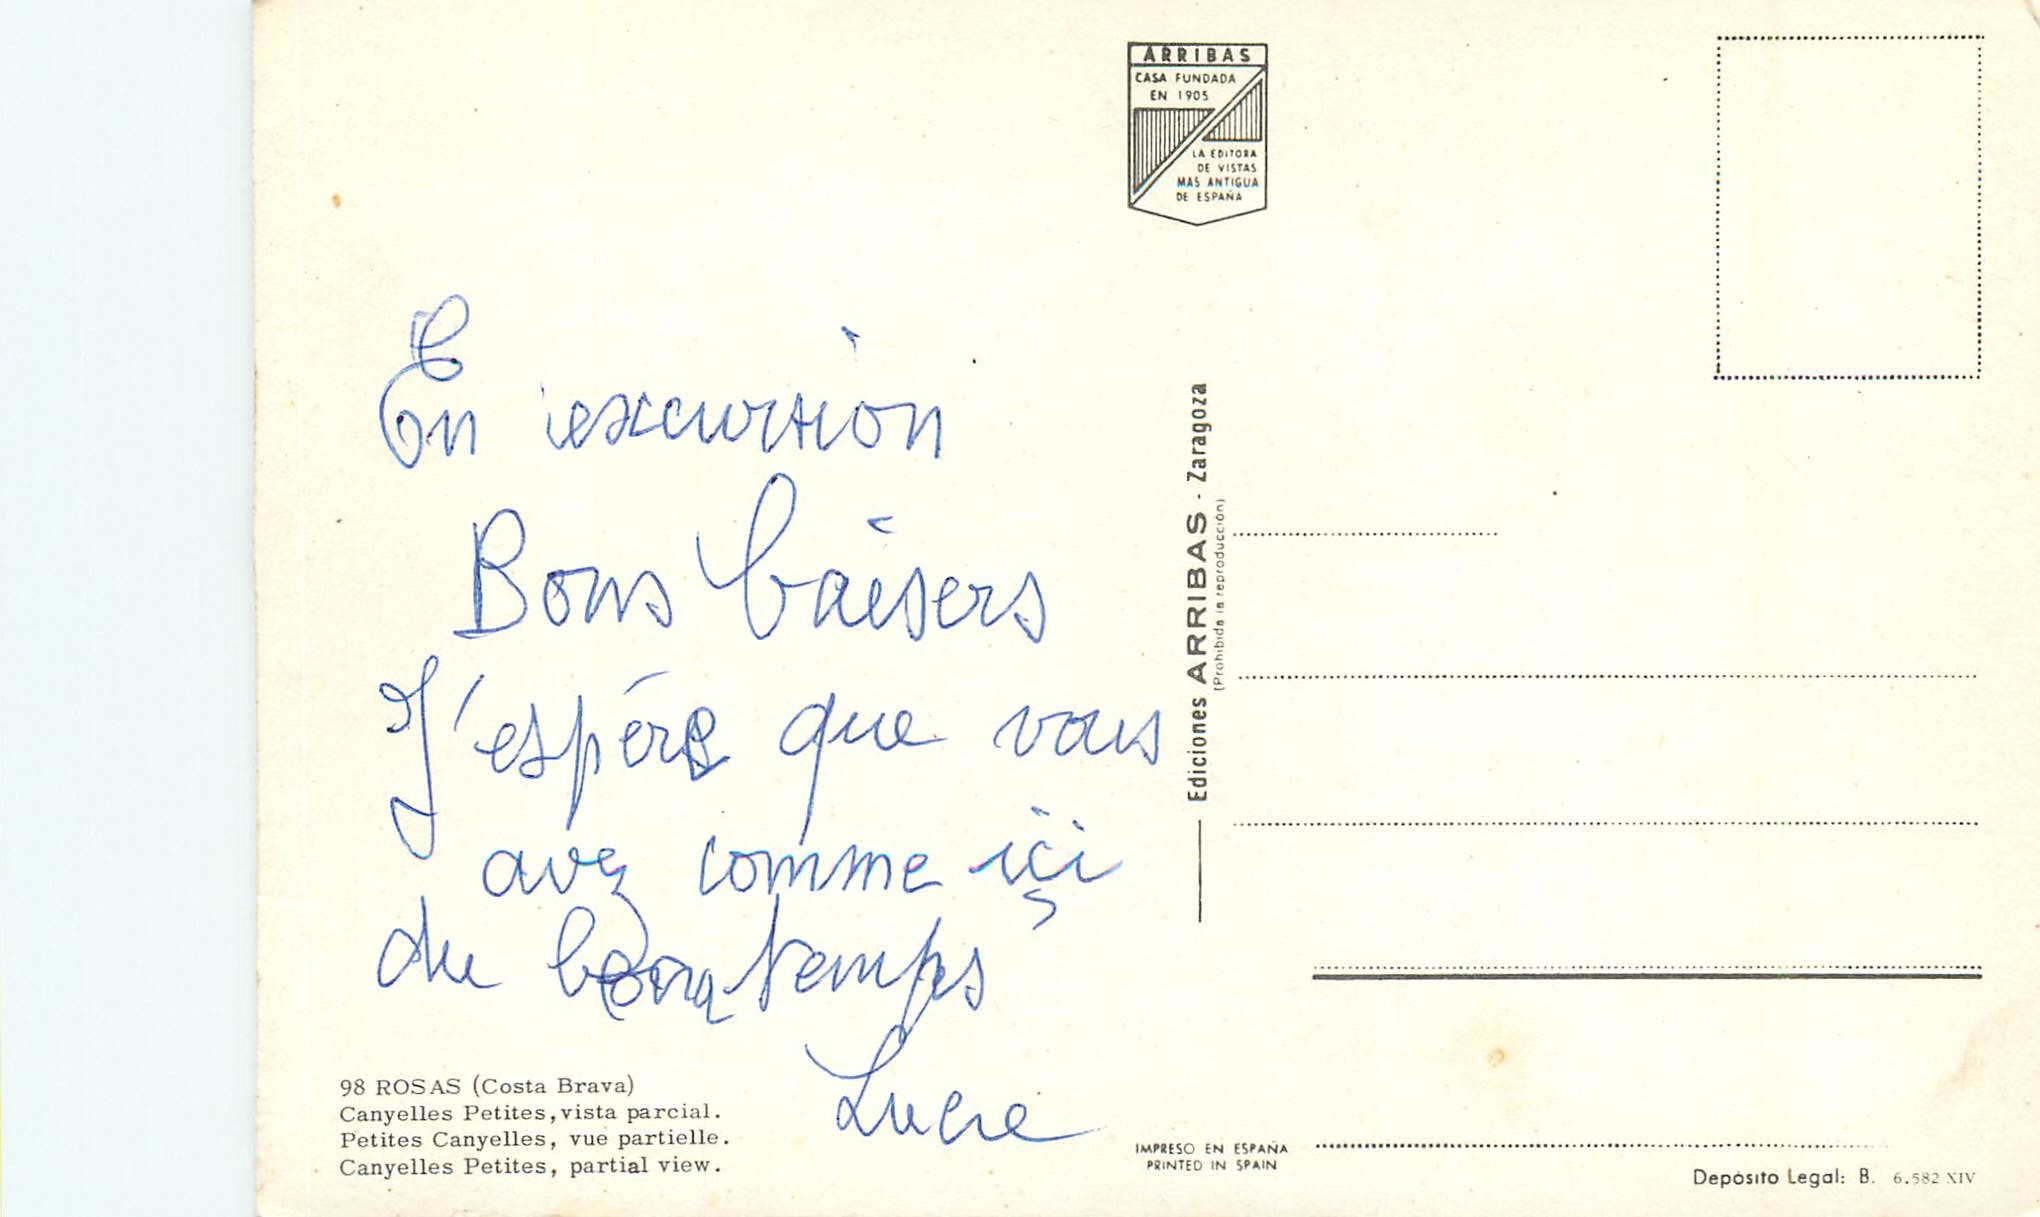 ARRIBAS
CASA FUNDADA
EN 1905
LA EDITORA
DE VISTAS
MAS ANTIGUA
DE ESPAÑA
En excursion
Bons baisers
J'espére que vous
avez comme içi
du bon temps
Lucie
98 ROSAS (Costa Brava)
Canyelles Petites, vista parcial.
Petites Canyelles, vue partielle.
Canyelles Petites, partial view.
Ediciones ARRIBAS - Zaragoza
(Prohibida la reproducción)
IMPRESO EN ESPAÑA
PRINTED IN SPAIN
Depósito Legal: B. 6.582 XIV